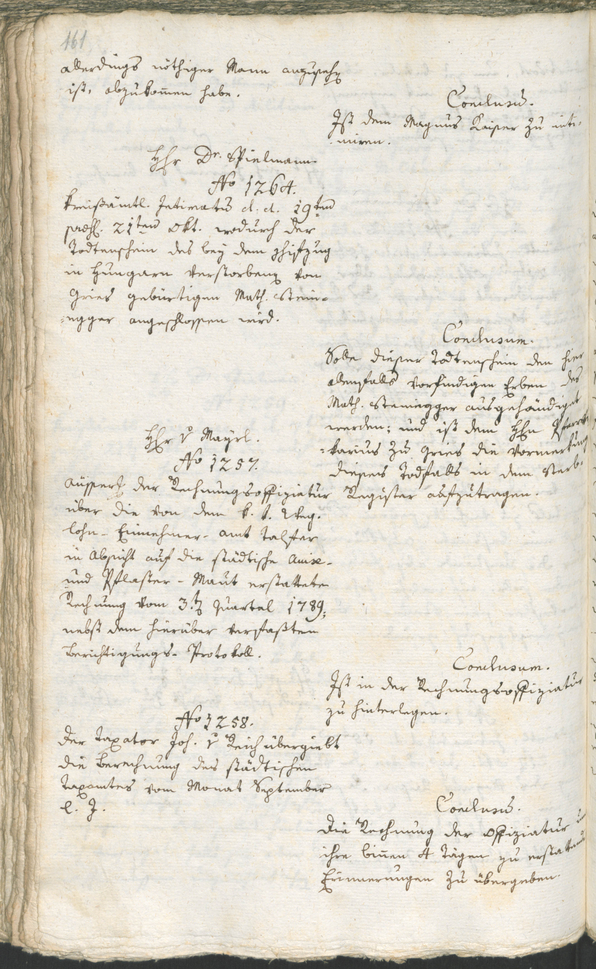 161
allerdings nöthiger Mann anzusehen
ist, abzukom̅en habe.
Conclusū.
Ist dem Magnus Kaiser zu inti-
miren.
Hhr Dr. Spielmann
No 1264.
Kreißämtl. Intimatū d. d. 19ten
prae. 21ten Okt. wodurch der
Todtenschein des bey dem Fuhrwesen
in Hungarn verstorbenen von
Gries gebürtigen Math. Stein-
egger angeschlossen wird.
Conclusum.
Solle dieser Todtenschein den hier
allenfalls vorfindigen Erben des
Math. Steinegger ausgehändiget
werden; und ist dem Hhn Pfarr-
vikarius zu Gries die Vormerkung
dieses Todfalls in dem Sterb-
Register aufzutragen.
Hhr v Mayrl.
No 1257.
Aüsserg der Rechnungsoffiziatur
über die von dem k. k. Weg-
lohn-Einnehmer-Amt Talfer
in Absicht auf die städtische Anise-
und Pflaster-Maut erstattete
Rechnung vom 3.ten Quartal 1789,
nebst dem hierüber verfaßten
Berichtigungs-Protokoll.
Conclusum.
Ist in der Rechnungsoffiziatur
zu hinterlegen.
No 1258.
Der Taxator Joh. v Reich übergiebt
die Berechnung des städtischen
Taxamtes vom Monat September
l. J.
Conclusū.
Die Rechnung der Offiziatur
ihre bin̅en 4 Tägen zu erstattende
Erinnerungen zu übergeben